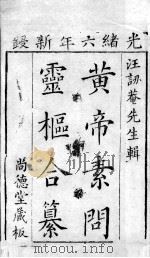 光緒六年新鐫
汪訒菴先生輯
黃帝素問
靈樞合纂
尚德堂藏板
www.mtoou.info